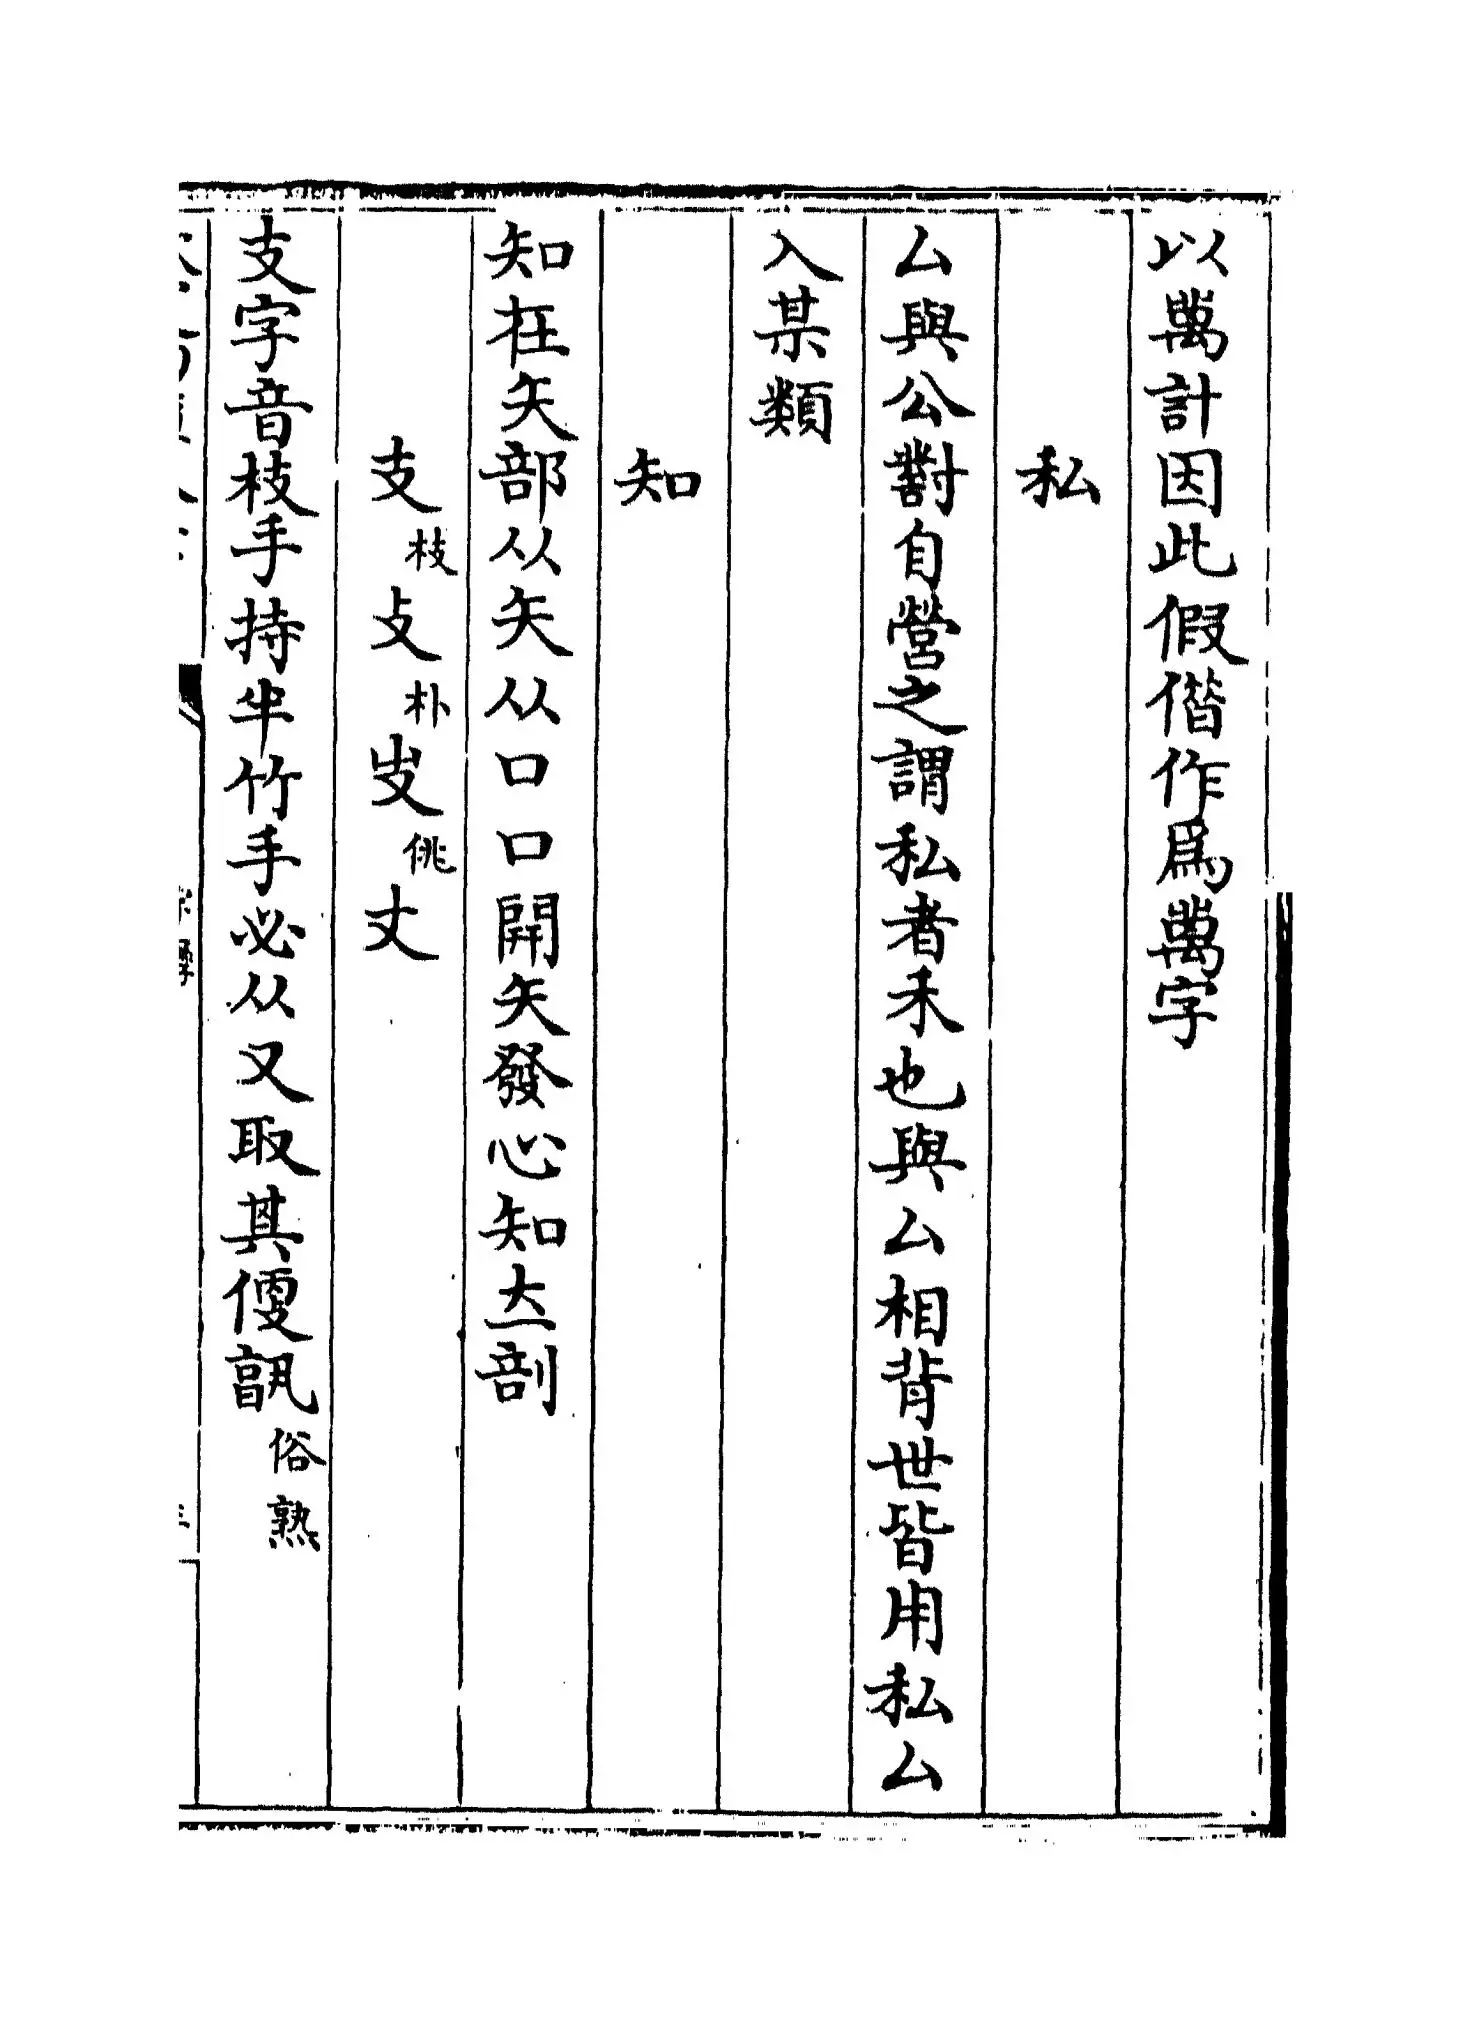 以萬計因此假借作爲萬字
私
厶與公對自營之謂私者禾也與厶相背世皆用私厶
入某類
知
知在矢部从矢从口口開矢發心知立剖
支枝攴朴㞢佻丈
支字音枝手持半竹手必从又取其便孰俗熟
字學